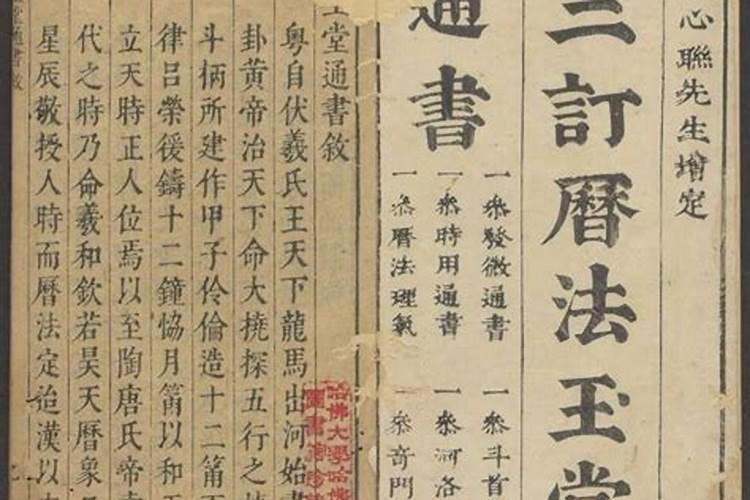 心聯先生增定
三訂曆法玉堂
通書
一叅發微通書
一叅斗首
一叅時用通書
一叅河洛
一叅曆法理氣
一叅奇門
堂通書敘
粵自伏羲氏王天下龍馬出河始畫
卦黃帝治天下命大撓探五行之情
斗柄所建作甲子伶倫造十二筩
律呂榮猨鑄十二鐘恊月筩以和
立天時正人位焉以至陶唐氏帝
代之時乃命羲和欽若昊天曆象
星辰敬授人時而曆法定迨漢以
哈佛大學哈佛
圖書